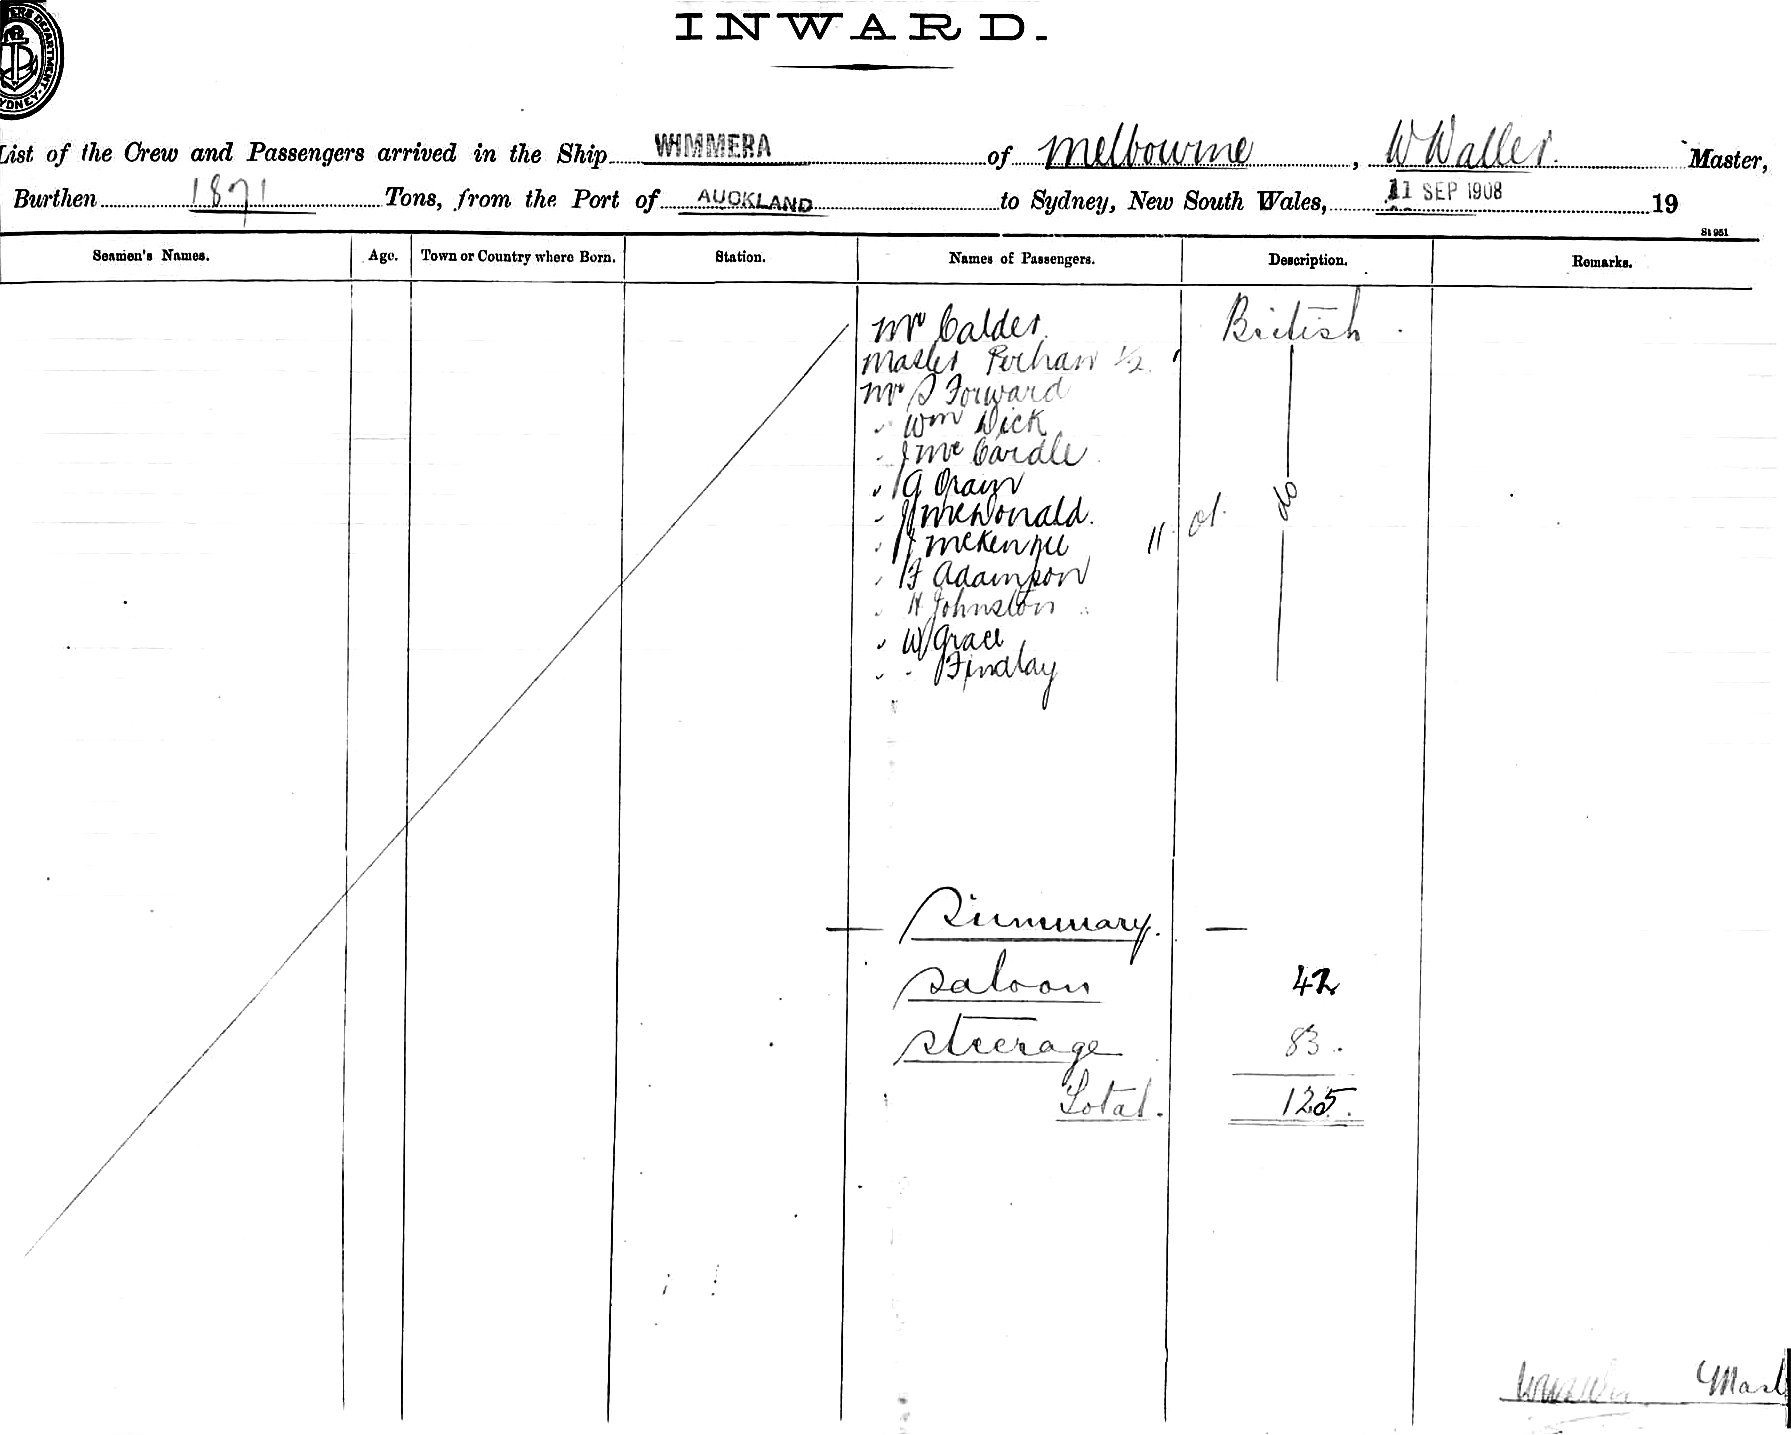 INWARD.
List of the Crew and Passengers arrived in the Ship WIMMERA of Melbourne, W Waller Master,
Burthen 1871 Tons, from the Port of AUCKLAND to Sydney, New South Wales, 11 SEP 1908 19
Seamen's Names. Age. Town or Country where Born. Station. Names of Passengers. Description. Remarks.
Mr Calder British
Master Perham 1/2
Mr S Forward
" Wm Dick
" J McCardle
" A Orain
" J McDonald. 11 do
" J McKenzie
" F Adamson
" H Johnston
" W Grace
" - Findlay
Summary.
Saloon 42
Steerage 83.
Total. 125.